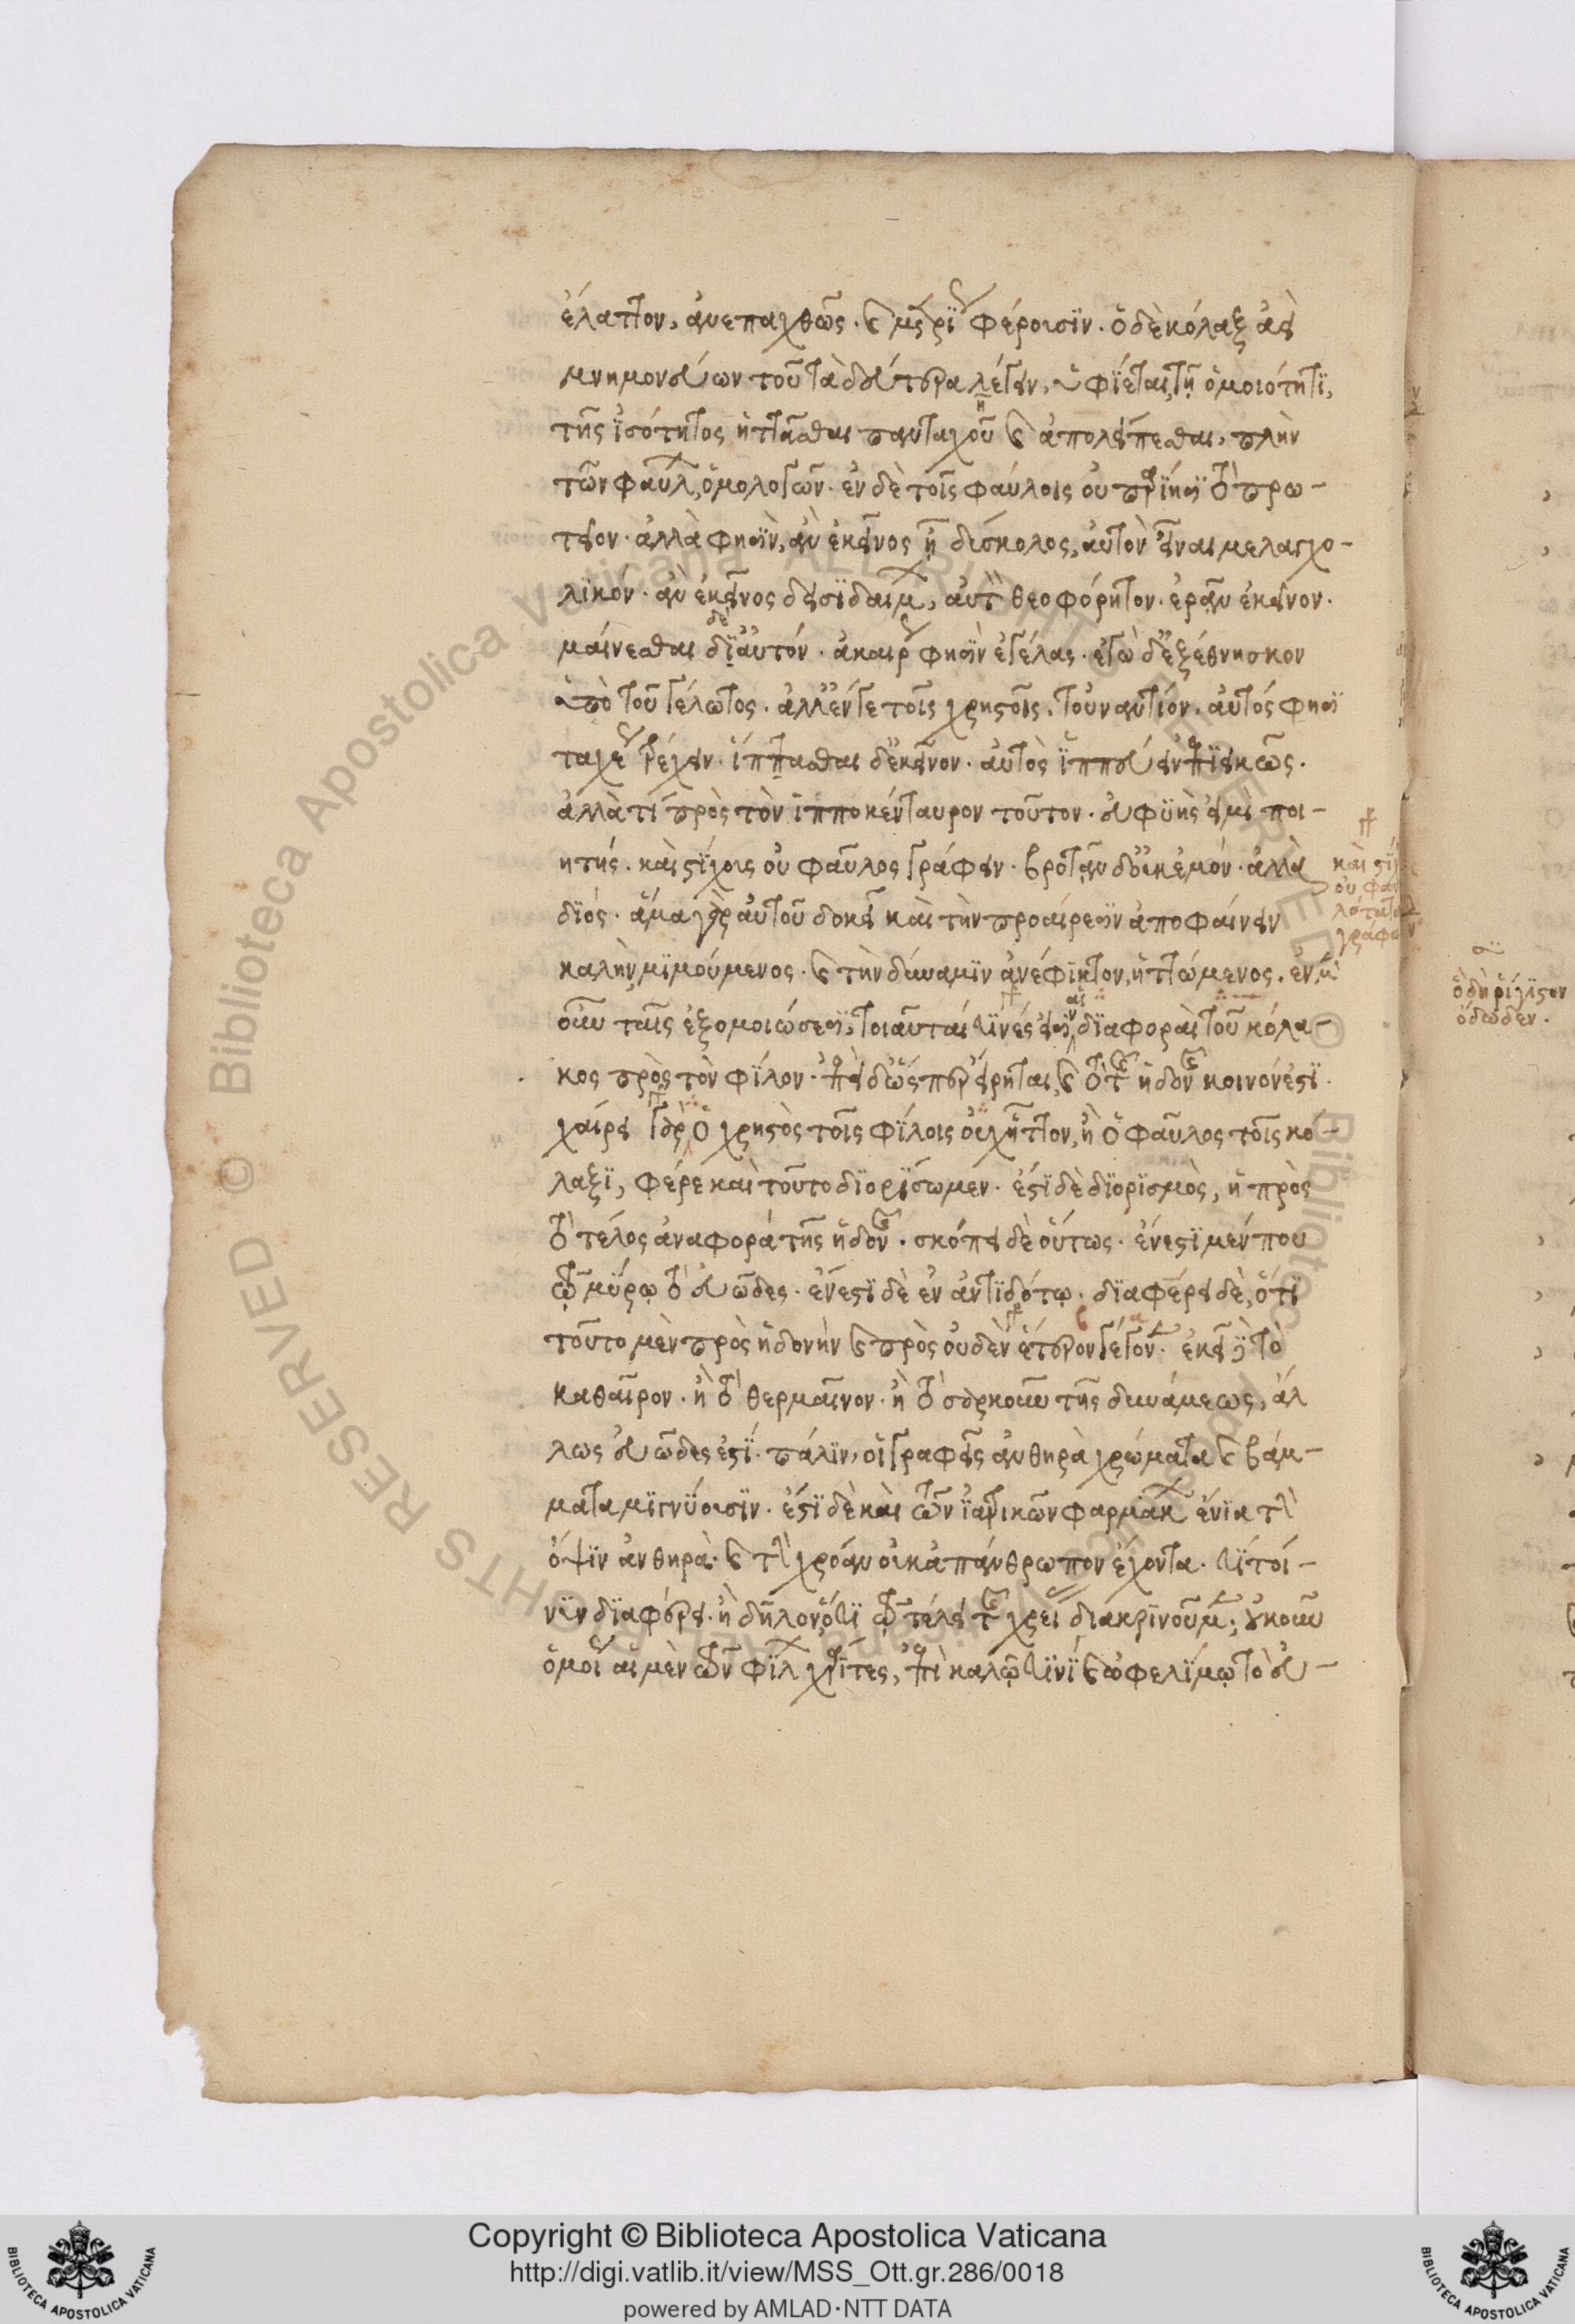 ἔλαττον, ἀνεπαχθῶς. καὶ μετρίως φέρουσιν. ὁ δὲ κόλαξ ἀεὶ
μνημονεύων τοῦ τὰ δεύτερα λέγειν, ὑφίεται τῇ ὁμοιότητι,
τῆς ἰσότητος ἡττᾶσθαι πανταχοῦ καὶ ἀπολείπεσθαι, πλὴν
τῶν φαύλων, ὁμολογῶν. ἐν δὲ τοῖς φαύλοις οὐ παρίησι τὸ πρω-
τεῖον. ἀλλὰ φησὶν, ἂν ἐκεῖνος ᾖ δύσκολος, αὐτὸν εἶναι μελαγχο-
λικόν. ἂν ἐκεῖνος δεισιδαίμων, αὐτὸν θεοφόρητον. ἐρᾶν ἐκεῖνον.
μαίνεσθαι δὲ αὐτόν. ἀκαίρως φησὶν ἐγέλας. ἐγὼ δ' ἐξέθνησκον
ὑπὸ τοῦ γέλωτος. ἀλλ' ἔν γε τοῖς χρηστοῖς, τοὐναντίον. αὐτός φησι
ταχέως τρέχειν. ἵπτασθαι δ' ἐκεῖνον. αὐτὸς ἱππεύειν ἐπιεικῶς.
ἀλλὰ τί πρὸς τὸν ἱπποκένταυρον τοῦτον. εὐφυής εἰμι ποι-
ητής. καὶ στίχοις οὐ φαῦλος γράφειν. βροντᾶν δ' οὐκ ἐμόν. ἀλλὰ
διός. ἅμα γὰρ αὐτοῦ δοκεῖ καὶ τὴν προαίρεσιν ἀποφαίνειν
καλὴν μιμούμενος. καὶ τὴν δύναμιν ἀνέφικτον, ἡττώμενος. ἐν μὲν
οὖν ταῖς ἐξομοιώσεσι, τοιαῦταί τινές εἰσιν αἱ διαφοραὶ τοῦ κόλα-
κος πρὸς τὸν φίλον. ἐπεὶ δ' ὥσπερ εἴρηται, καὶ τὸ τῆς ἡδονῆς κοινόν ἐστι.
χαίρει γὰρ ὁ χρηστὸς τοῖς φίλοις οὐχ ἧττον, ἢ ὁ φαῦλος τοῖς κό-
λαξι, φέρε καὶ τοῦτο διορίσωμεν. ἔστι δὲ διορισμὸς, ἡ πρὸς
τὸ τέλος ἀναφορά τῆς ἡδονῆς. σκόπει δὲ οὕτως. ἔνεστι μέν που
τῷ μύρῳ τὸ εὐῶδες. ἔνεστι δὲ ἐν ἀντιδότῳ. διαφέρει δὲ, ὅτι
τοῦτο μὲν πρὸς ἡδονὴν καὶ πρὸς οὐδὲν ἕτερον γέγονεν. ἐκεῖ δὲ τὸ
καθαῖρον. ἢ τὸ θερμαῖνον. ἢ τὸ σαρκοῦν τῆς δυνάμεως, ἄλ
λως εὐῶδες ἐστί. πάλιν, οἱ γραφεῖς ἀνθηρὰ χρώματα καὶ βάμ-
ματα μιγνύουσιν. ἔστι δὲ καὶ τῶν ἰατρικῶν φαρμάκων ἔνια τὴν
ὄψιν ἀνθηρὰ. καὶ τὴν χρόαν οὐκ ἀπάνθρωπον ἔχοντα. τί τοί-
νυν διαφέρει. ἢ δῆλον ὅτι τῷ τέλει τῆς χρείας διακρινοῦμεν; οὐκοῦν
ὁμοίως αἱ μὲν τῶν φίλων χάριτες, ἐπὶ καλῷ τινὶ καὶ ὠφελίμῳ τὸ εὐ-
καὶ στίχ
οὐ φαυ
λότατα
γράφω
ὅδωδεν.
Copyright © Biblioteca Apostolica Vaticana
http://digi.vatlib.it/view/MSS_Ott.gr.286/0018
powered by AMLAD·NTT DATA